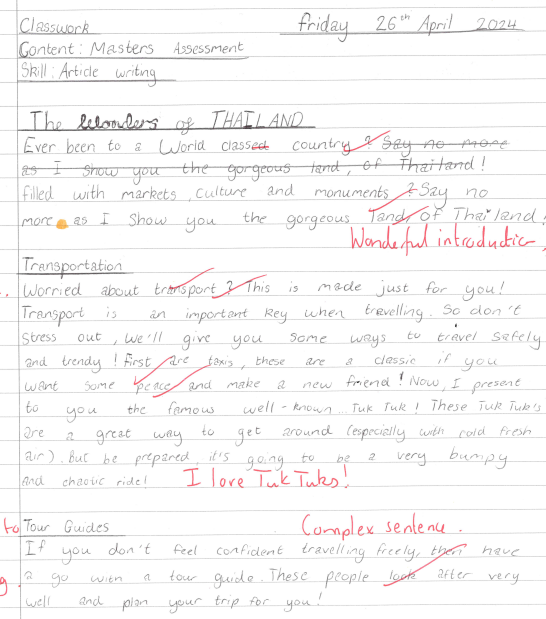 Classwork friday 26th April 2024
Content: Masters Assessment
Skill: Article writing
The Wonders of THAILAND
Ever been to a World classed country? Say no more
as I show you the gorgeous land, of Thailand!
filled with markets, culture and monuments? Say no
more as I Show you the gorgeous land, of Thailand!
Wonderful introductio
Transportation
Worried about transport? This is made just for you!
Transport is an important key when travelling. So don't
stress out, we'll give you some ways to travel safely
and trendy! first are taxis, these are a classic if you
want some peace and make a new friend! Now, I present
to you the famous well-known... Tuk Tuk! These Tuk Tuk's
are a great way to get around (especially with cold fresh
air). But be prepared, it's going to be a very bumpy
and chaotic ride! I love Tuk Tuks!
to Tour Guides Complex sentence.
If you don't feel confident travelling freely, then have
g. a go with a tour guide. These people look after very
well and plan your trip for you!